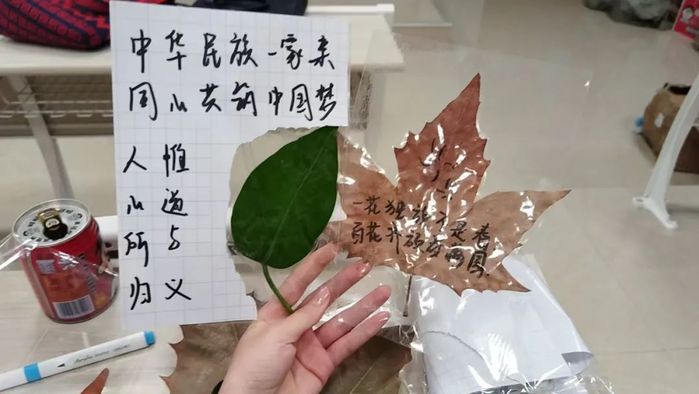 中华民族一家亲
同心共筑中国梦
人心所归
惟道与义
一花独放不是春
百花齐放春满园